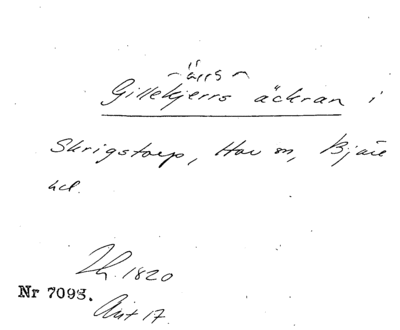 -ärrs-
Gillekjerrs äckran i
Skrigstorp, Hov sn, Bjäre
hd.
Lh. 1820
Nr 7093.
Akt 17.